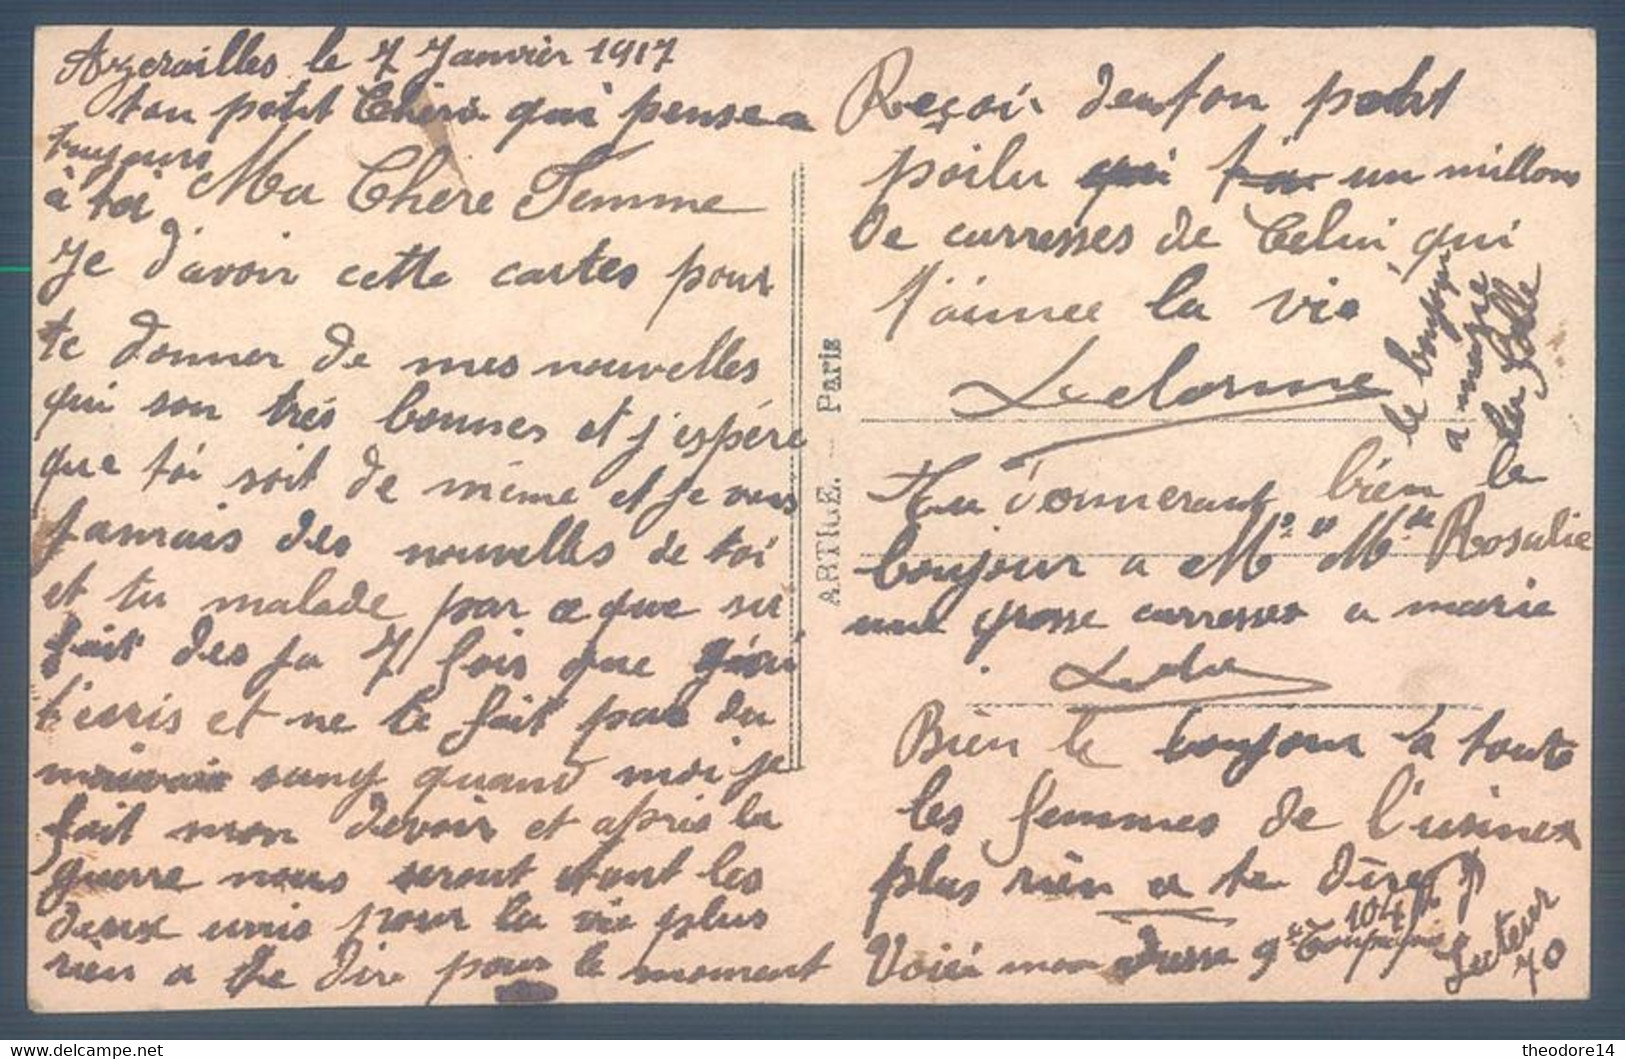 Azerailles le 7 Janvier 1917
ton petit Chéri qui pense a
toujours
à toi
Ma Chere Femme
Je d'avoir cette cartes pour
te donner de mes nouvelles
qui son trés bonnes et j'espére
que toi soit de méme et je
jamais des nouvelles de toi
et tu malade par ce que
fait des ja 7 fois que
t'ecris et ne te fait pas du
mauvais sang quand moi je
fait mon devoir et aprés la
guerre nous seront tout les
deux unis pour la vie plus
rien a te dire pour le moment
ARTIGE. - Paris
Reçoir de ton petit
poilu qui un millions
de carresses de Celui qui
t'aimee la vie
Delorme
le bonjour
a marie
la Belle
Tu donnerant bien le
bonjour a Mr " Mme Rosalie
une grosse carresses a marie
Bien le bonjour a toute
les femmes de l'usines
plus rien a te dire
Voici mon adresse 9e Compagnie
104
Secteur
70
theodore14